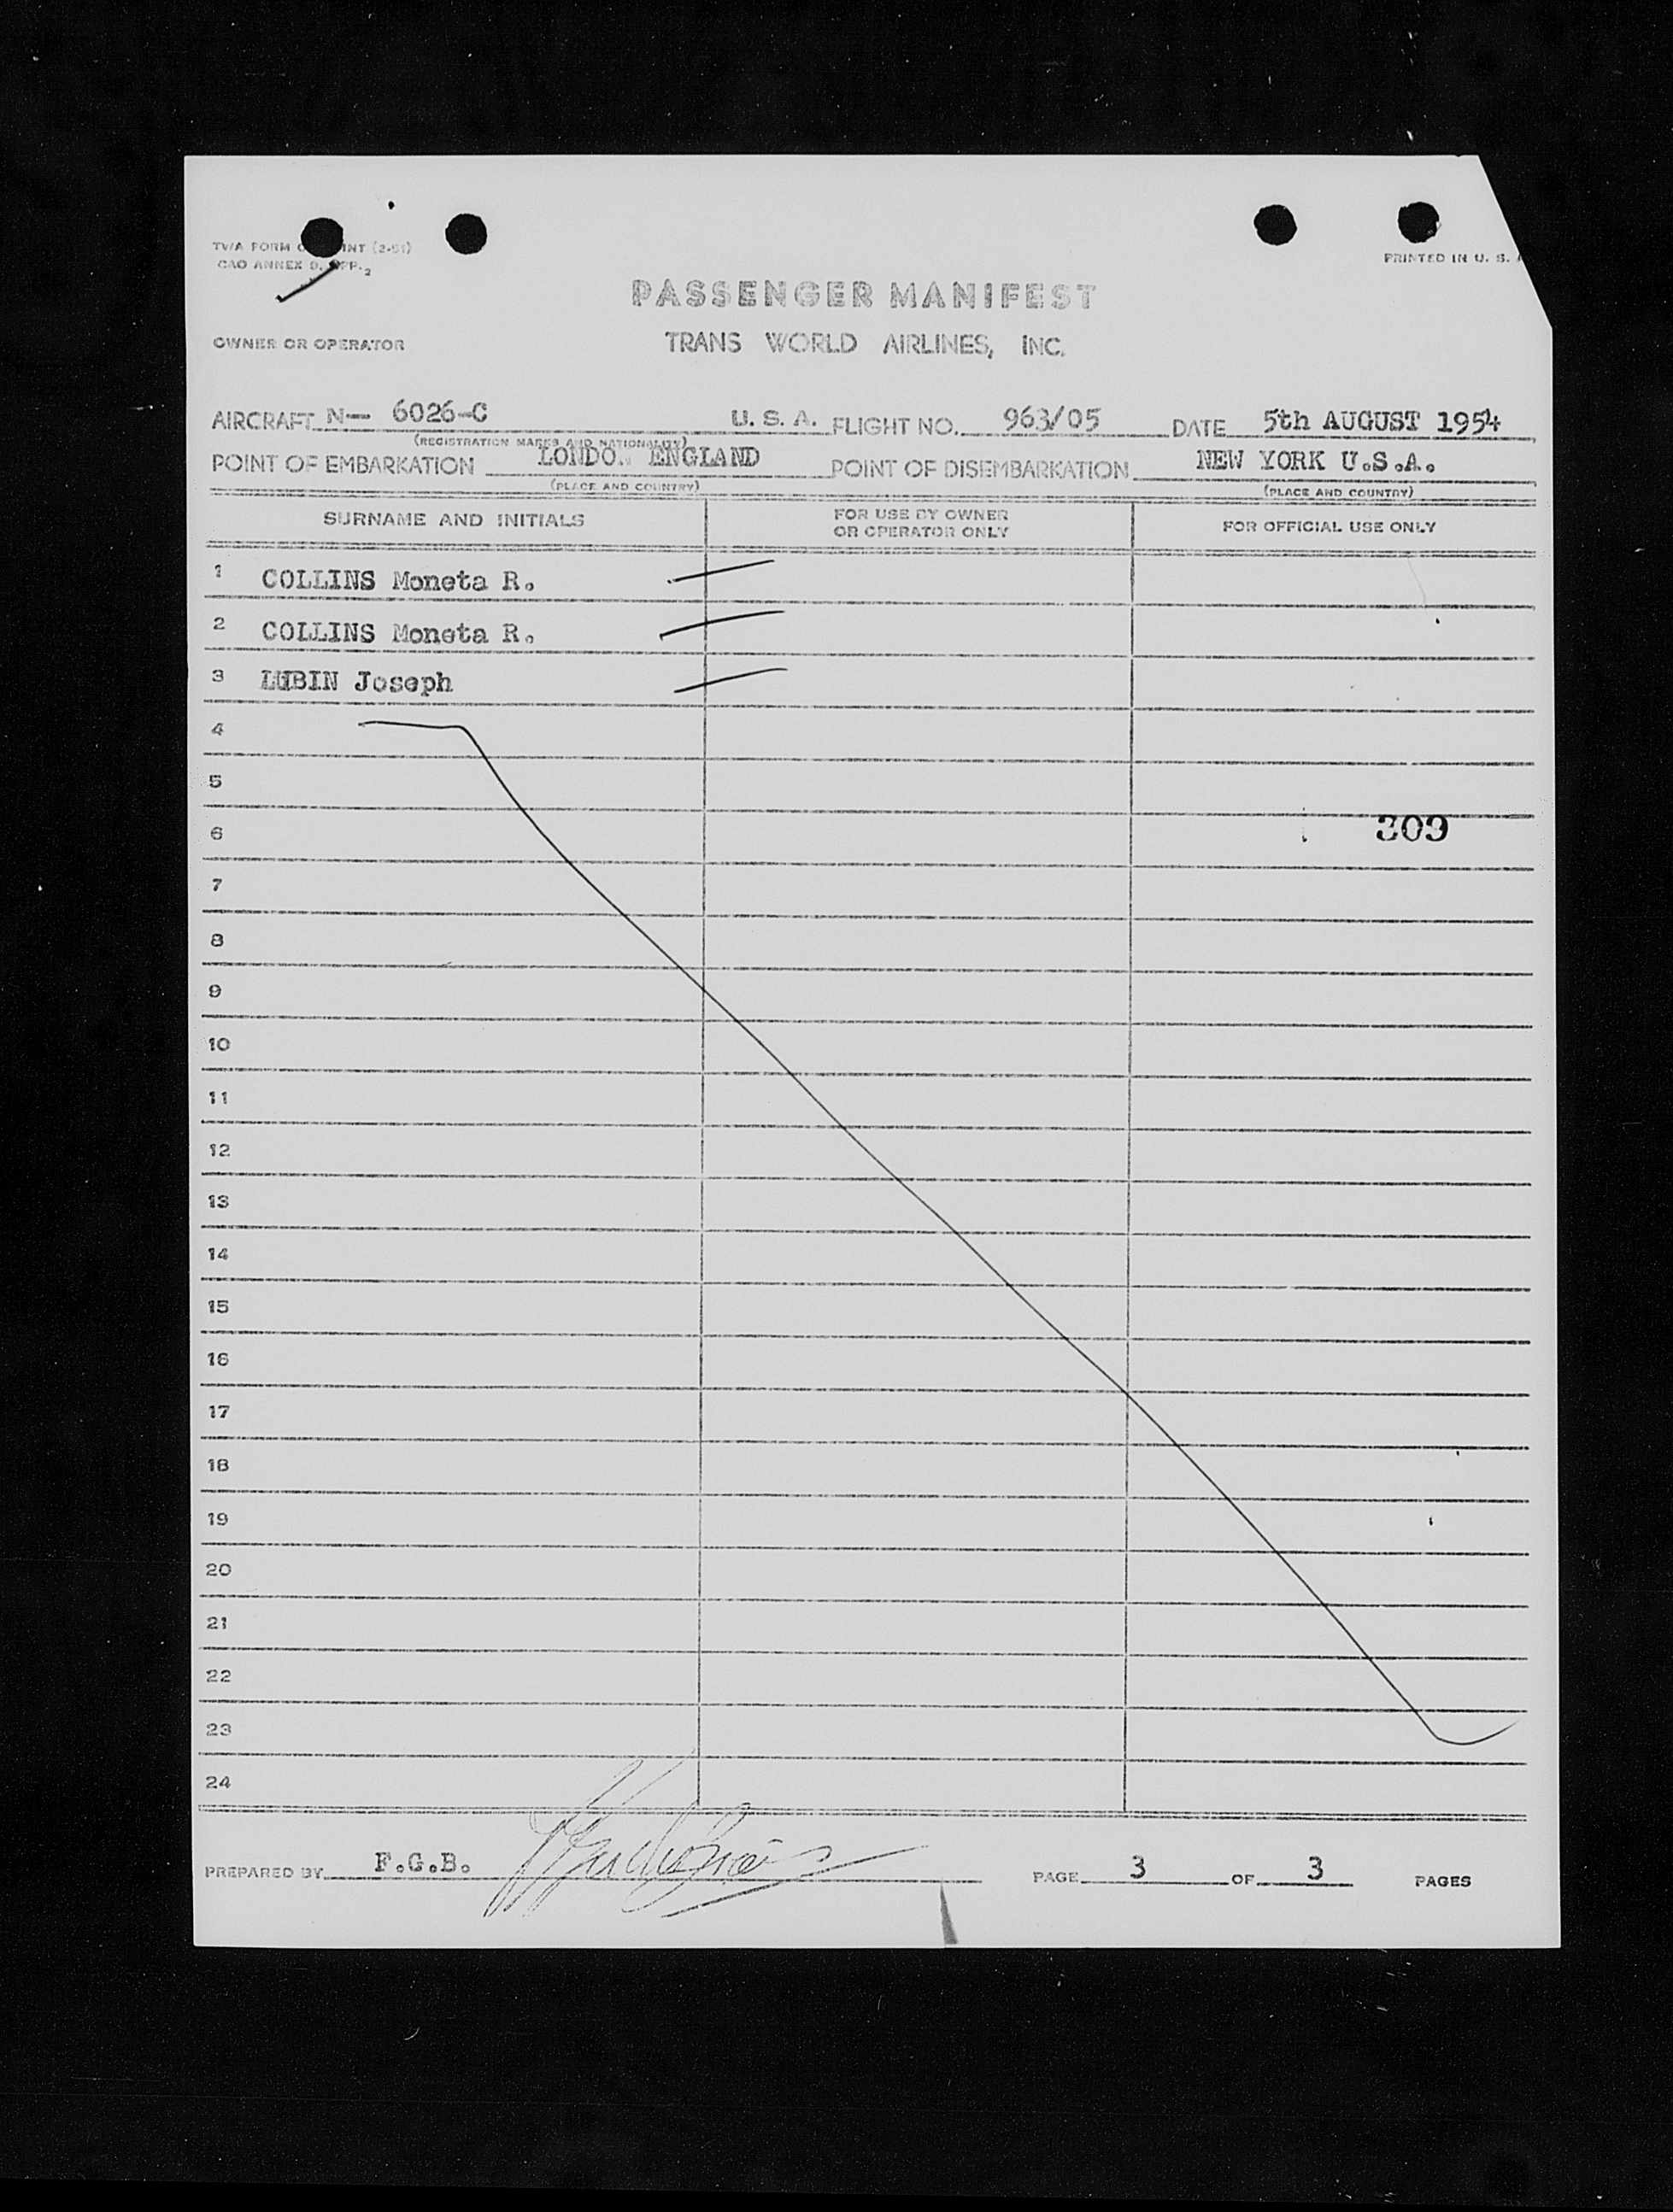 TWA FORM INT (2-51)
CAO ANNEX 9, APP. 2
PRINTED IN U. S. A
PASSENGER MANIFEST
OWNER OR OPERATOR TRANS WORLD AIRLINES, INC.
AIRCRAFT N— 6026-C U. S. A. FLIGHT NO. 963/05 DATE 5th AUGUST 1954
(REGISTRATION MARKS AND NATIONALITY)
POINT OF EMBARKATION LONDON ENGLAND POINT OF DISEMBARKATION NEW YORK U.S.A.
(PLACE AND COUNTRY) (PLACE AND COUNTRY)
SURNAME AND INITIALS FOR USE BY OWNER OR OPERATOR ONLY FOR OFFICIAL USE ONLY
1 COLLINS Moneta R.
2 COLLINS Moneta R.
3 LUBIN Joseph
4
5
6 309
7
8
9
10
11
12
13
14
15
16
17
18
19
20
21
22
23
24
PREPARED BY F.G.B. PAGE 3 OF 3 PAGES